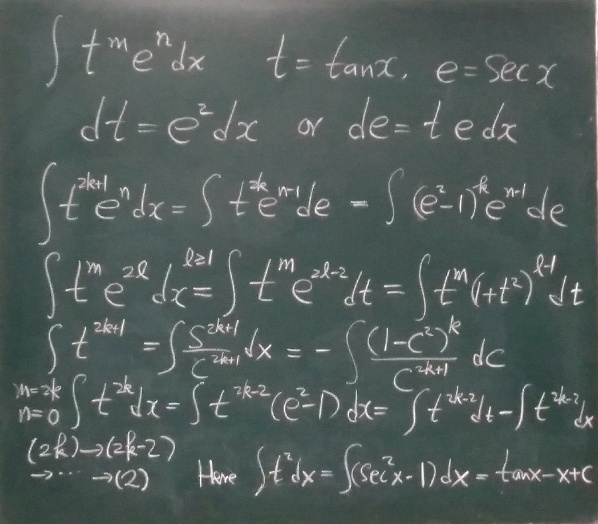 ∫ t^m e^n dx   t = tanx, e = sec x
dt = e² dx  or  de = t e dx
∫ t^{2k+1} e^n dx = ∫ t^{2k} e^{n-1} de = ∫ (e²-1)^k e^{n-1} de
∫ t^m e^{2l} dx =^{l≥1} ∫ t^m e^{2l-2} dt = ∫ t^m (1+t²)^{l-1} dt
∫ t^{2k+1} = ∫ S^{2k+1}/C^{2k+1} dx = - ∫ (1-C²)^k/C^{2k+1} dc
m=2k n=0 ∫ t^{2k} dx = ∫ t^{2k-2} (e²-1) dx = ∫ t^{2k-2} dt - ∫ t^{2k-2} dx
(2k)→(2k-2)
→ ⋯ →(2)  Here ∫ t² dx = ∫(sec²x-1) dx = tanx-x+c